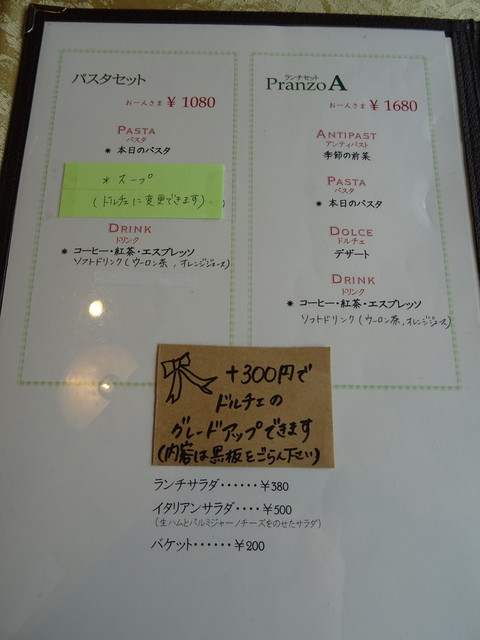 パスタセット
お一人さま ¥ 1080
PASTA
パスタ
* 本日のパスタ
* スープ
(ドルチェに変更できます)
DRINK
ドリンク
* コーヒー・紅茶・エスプレッソ
ソフトドリンク(ウーロン茶,オレンジジュース)
ランチセット
Pranzo A
お一人さま ¥ 1680
ANTIPAST
アンティパスト
季節の前菜
PASTA
パスタ
* 本日のパスタ
DOLCE
ドルチェ
デザート
DRINK
ドリンク
* コーヒー・紅茶・エスプレッソ
ソフトドリンク(ウーロン茶,オレンジジュース)
+300円で
ドルチェの
グレードアップできます
(内容は黒板をごらん下さい)
ランチサラダ・・・・・・¥380
イタリアンサラダ・・・・¥500
(生ハムとパルミジャーノチーズをのせたサラダ)
バケット・・・・・・¥200